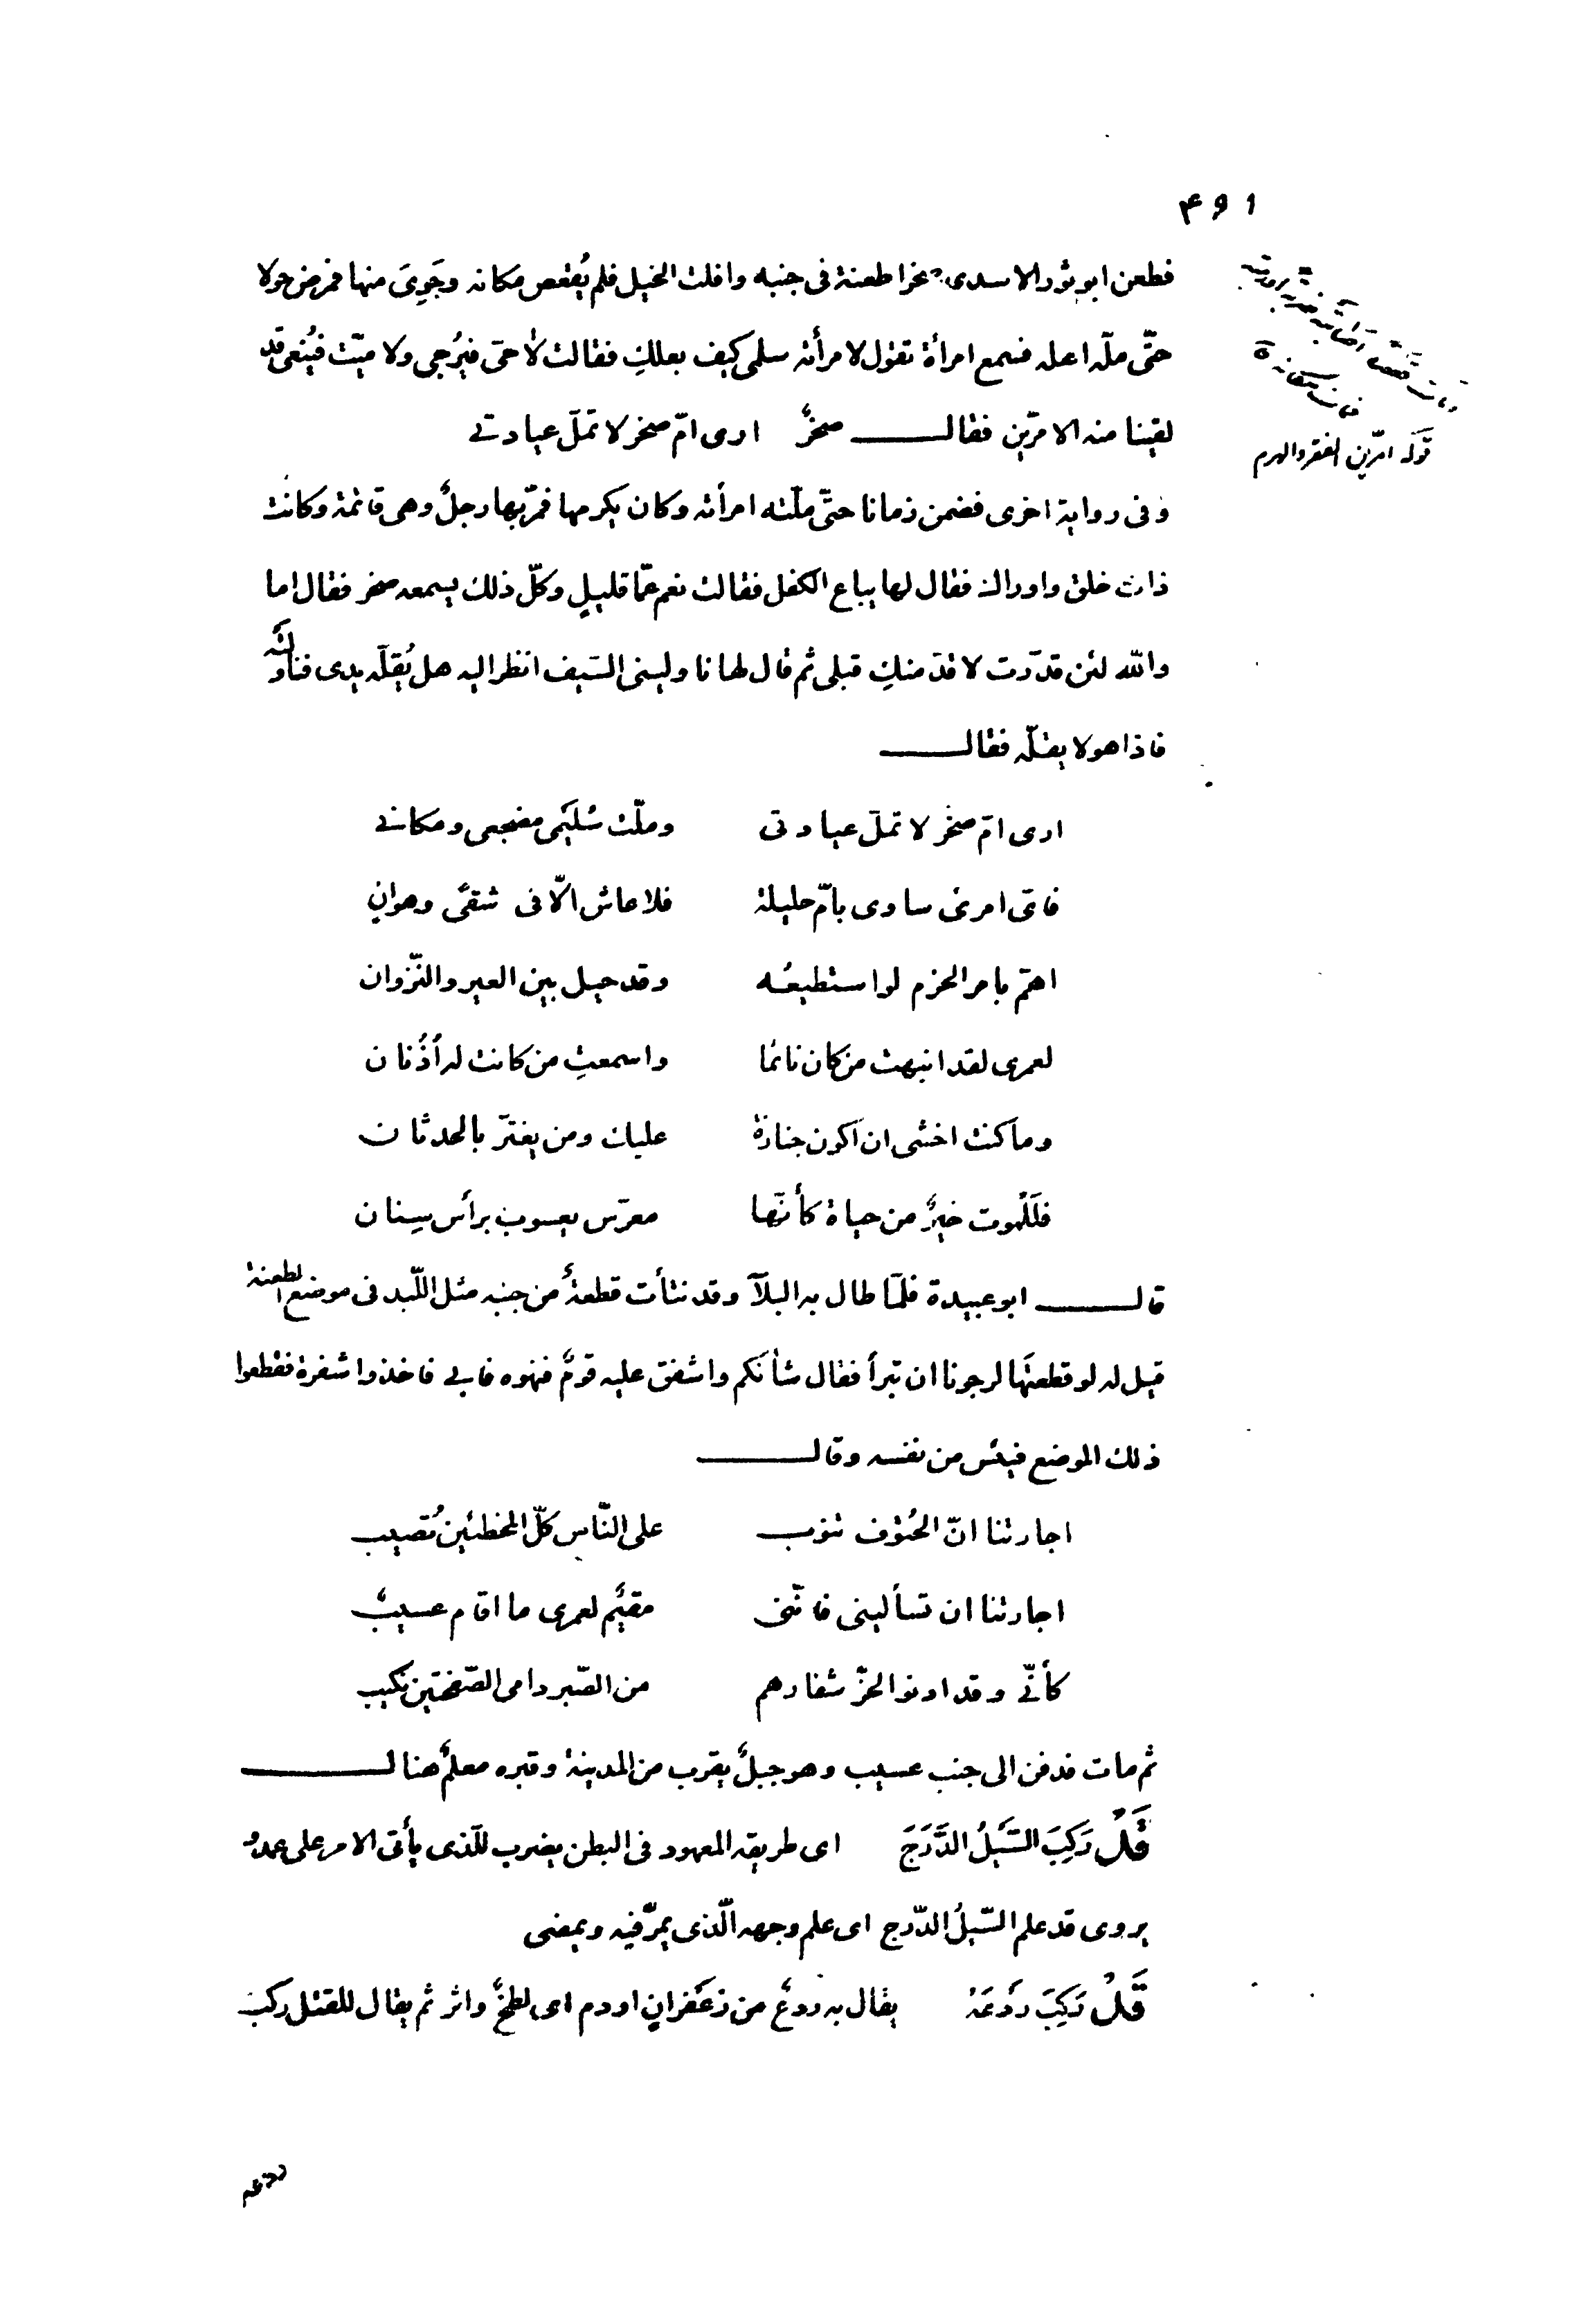 ۴۹۱
فطعن ابو ثور الاسدى صخرا طعنة فى جنبه وافلت الخيل فلم يُقعص مكانه وجَوِىَ منها فمرض حولا
حتّى ملّه اهله فسمع امرأة تقول لامرأته سلمى كيف بعلكِ فقالت لا حىّ فيُرجى ولا ميّت فيُنعى قد
لقينا منه الامرّين فقال صخرٌ ارى امّ صخر لا تملّ عيادتى
قوله امرّين الفقر والهرم
وفى رواية اخرى فضمن زمانا حتّى ملّته امرأته وكان يكرمها فمرّ بها رجلٌ وهى قائمة وكانت
ذات خلق واوراك فقال لها يباع الكفل فقالت نعم عمّا قليلٍ وكلّ ذلك يسمعه صخر فقال اما
والله لئن قدرت لاقدّمنكِ قبلى ثم قال لها ناولينى السّيف انظر اليه هل يُقلّه يدى فناولَتْه
فاذا هو لا يقلّه فقال
ارى امّ صخر لا تملّ عيادتى وملّت سُليمى مضجعى ومكانى
فاىّ امرئ ساوى بامّ حليلة فلا عاش الّا فى شقىً وهوانِ
اهمّ بامر الحزم لو استطيعُه وقد حيل بين العير والنّزوان
لعمرى لقد انبهت من كان نائما واسمعتِ من كانت له أُذُنان
وما كنت اخشى ان اكون جنازة عليك ومن يغترّ بالحدثان
فلَلموت خيرٌ من حياة كأنّها معرّس يعسوب برأس سِنان
قال ابو عبيدة فلمّا طال به البلآ وقد نتأت قطعةٌ من جنبه مثل اللّبد فى موضع الطعنة
قيل له لو قطعتَها لرجونا ان تبرأ فقال شأنَكم واشفق عليه قومٌ فنهوه فابى فاخذوا شفرة فقطعوا
ذلك الموضع فيئس من نفسه وقال
اجارتنا انّ الحُتوف تنوب على النّاس كلّ المخطئين تُصيب
اجارتنا ان تسألينى فانّنى مقيمٌ لعمرى ما اقام عسيبُ
كأنّى وقد ادنوا لحزّ شفارهم من الصّبر دامى الصّفحتين نكيب
ثم مات فدفن الى جنب عسيب وهو جبلٌ يقرب من المدينة وقبره معلمٌ هناك
قَدْ رَكِبَ السَّيلُ الدَّرَجَ اى طريقه المعهود فى البطن يضرب للّذى يأتى الامر على عهدٍ و
يروى قد علم السّيلُ الدّرج اى علم وجهه الّذى يمرّ فيه ويمضى
قَدْ رَكِبَ رَدْعَهُ يقال به ردعٌ من زعفرانٍ او دم اى لطخٌ واثر ثم يقال للقتيل ركب
ردعه